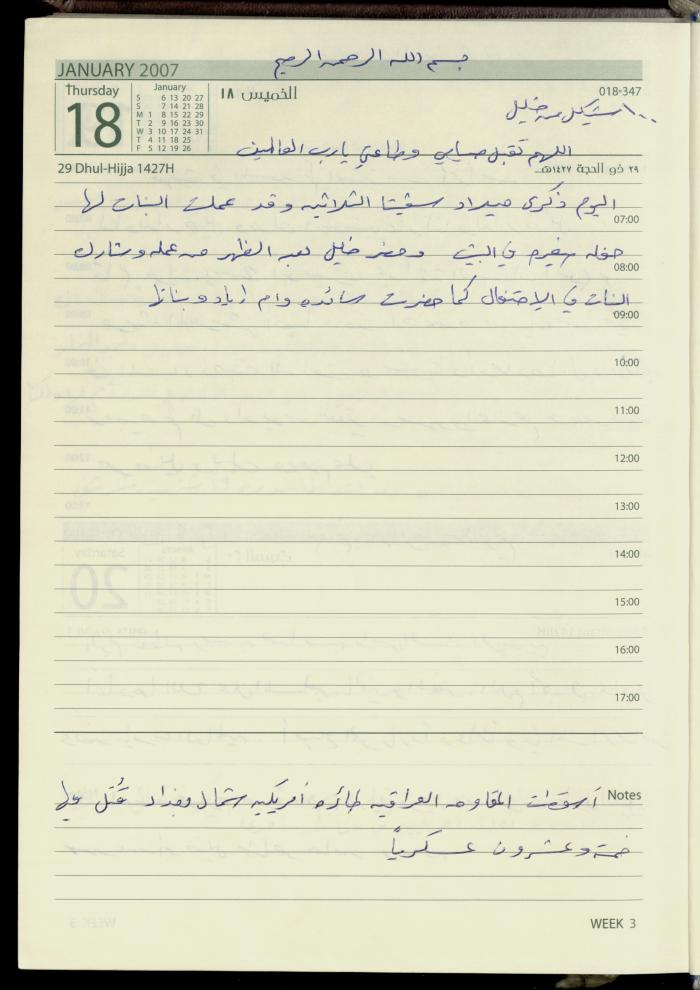 بسم الله الرحمن الرحيم
JANUARY 2007
Thursday
18
January
S 6 13 20 27
S 7 14 21 28
M 1 8 15 22 29
T 2 9 16 23 30
W 3 10 17 24 31
T 4 11 18 25
F 5 12 19 26
الخميس ١٨
018-347
١٠٠ شيكل من خليل
اللهم تقبل صيامي وطاعتي يارب العالمين
29 Dhul-Hijja 1427H
٢٩ ذو الحجة ١٤٢٧هـ
اليوم ذكرى ميلاد الثلاثين وقد عملت البنات لها
07:00
حفله صغيره في البيت وحضر خليل بعد الظهر من عمله وشارك
08:00
البنات في الاحتفال كما حضرت سائده وام اياد وبناتها
09:00
10:00
11:00
12:00
13:00
14:00
15:00
16:00
17:00
Notes
أسقطت المقاومه العراقيه طائره أمريكيه شمال بغداد قُتل فيها
خمسة وعشرون عسكرياً
WEEK 3